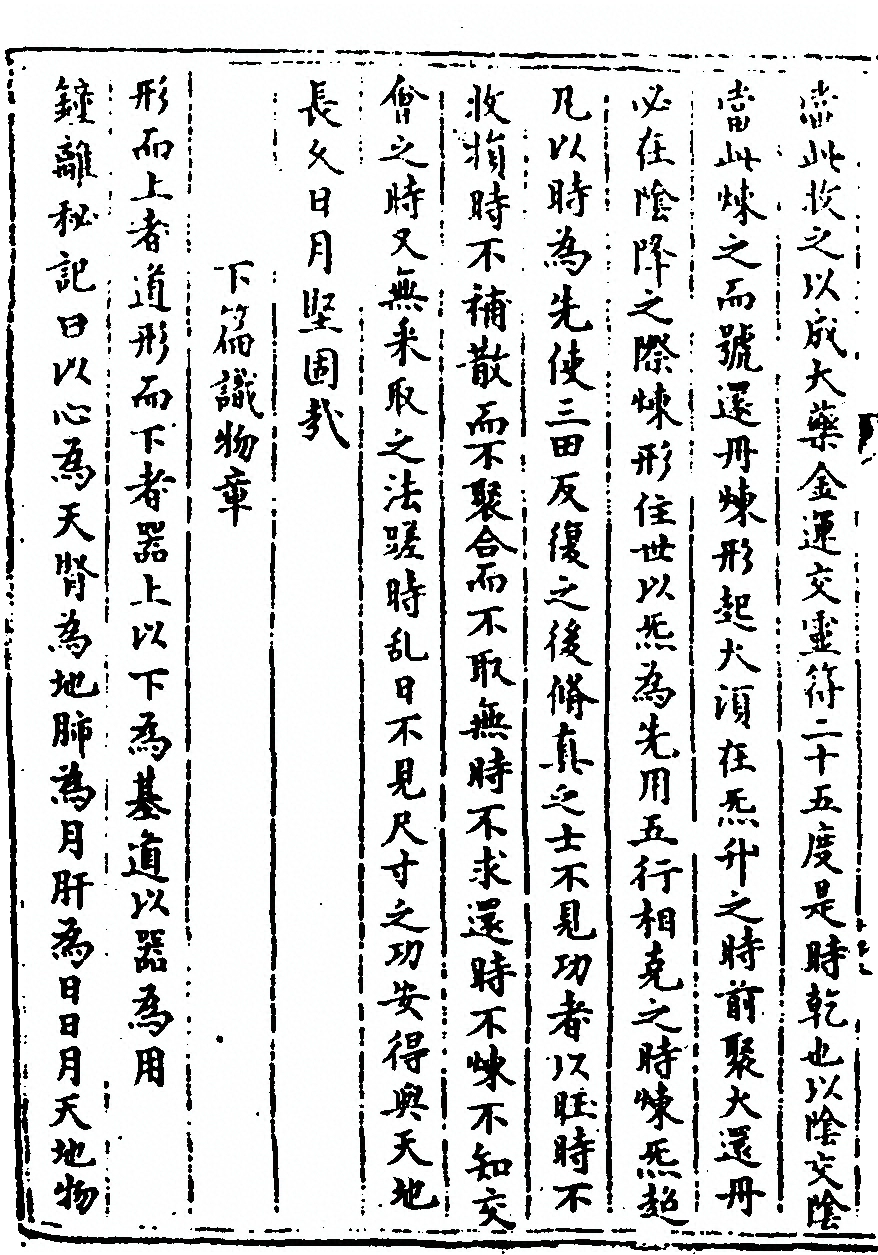 當此收之以成大藥金運交靈符二十五度是時乾也以陰交陰
當此煉之而號還丹煉形起火須在炁升之時前聚火還丹
必在陰降之際煉形住世以炁為先用五行相克之時煉炁超
凡以時為先使三田反復之後脩真之士不見功者以旺時不
收損時不補散而不聚合而不取無時不求還時不煉不知交
會之時又無采取之法蹉時乱日不見尺寸之功安得與天地
長久日月堅固哉
下篇識物章
形而上者道形而下者器上以下為基道以器為用
鍾離秘記曰以心為天腎為地肺為月肝為日日月天地物